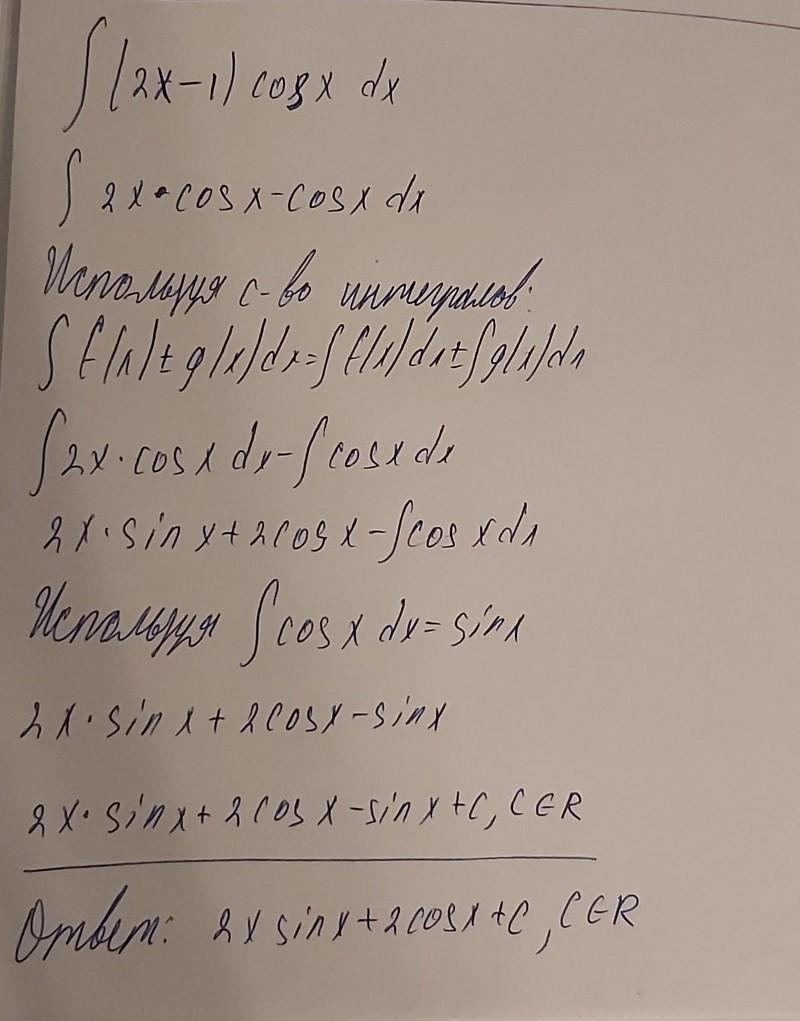 ∫(2x-1) cosx dx
∫ 2x•cosx-cosx dx
Используя с-во интегралов:
∫f(x)±g(x)dx=∫f(x)dx±∫g(x)dx
∫2x·cosx dx-∫cosx dx
2x·sinx+2cosx-∫cosxdx
Используя ∫cosx dx=sinx
2x·sinx+2cosx-sinx
2x·sinx+2cosx-sinx+C, C∈R
Ответ: 2xsinx+2cosx+C, C∈R